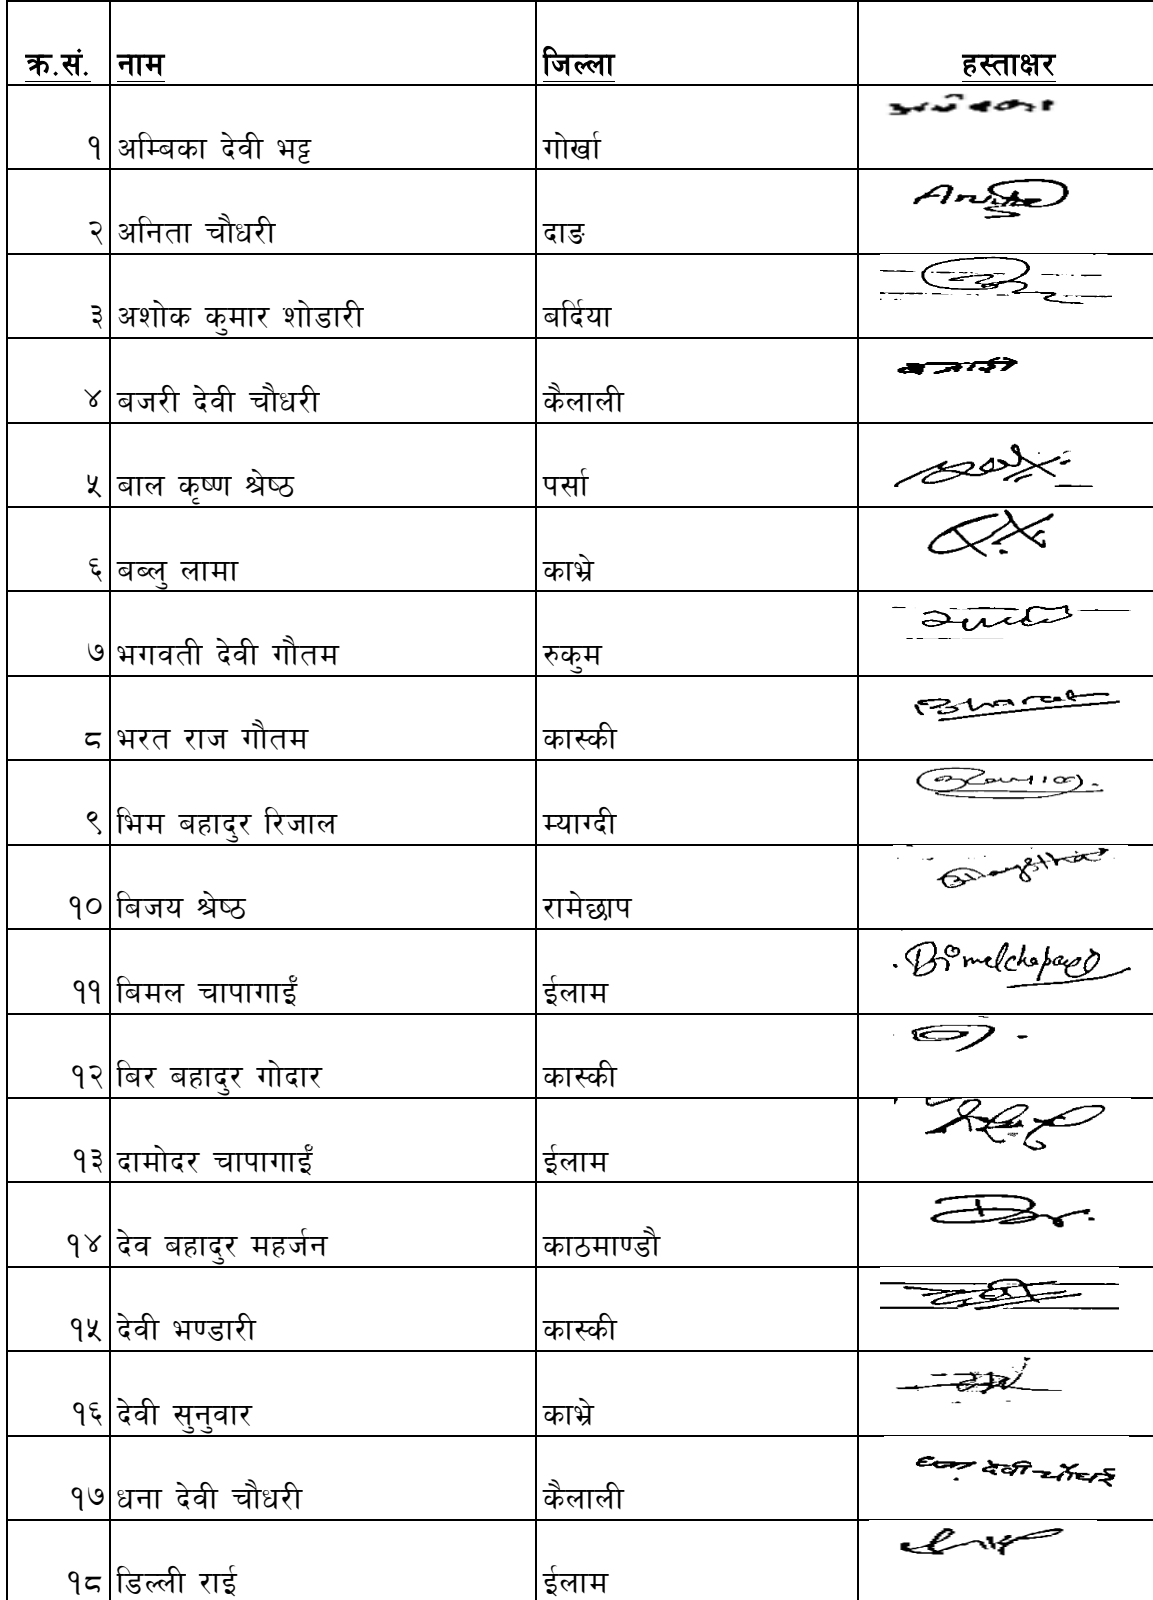 क्र.सं. नाम जिल्ला हस्ताक्षर
१ अम्बिका देवी भट्ट गोर्खा
२ अनिता चौधरी दाङ
३ अशोक कुमार शोडारी बर्दिया
४ बजरी देवी चौधरी कैलाली
५ बाल कृष्ण श्रेष्ठ पर्सा
६ बब्लु लामा काभ्रे
७ भगवती देवी गौतम रुकुम
८ भरत राज गौतम कास्की Bharat
९ भिम बहादुर रिजाल म्याग्दी
१० बिजय श्रेष्ठ रामेछाप
११ बिमल चापागाईं ईलाम
१२ बिर बहादुर गोदार कास्की
१३ दामोदर चापागाईं ईलाम
१४ देव बहादुर महर्जन काठमाण्डौ
१५ देवी भण्डारी कास्की
१६ देवी सुनुवार काभ्रे
१७ धना देवी चौधरी कैलाली धना देवी चौधरी
१८ डिल्ली राई ईलाम